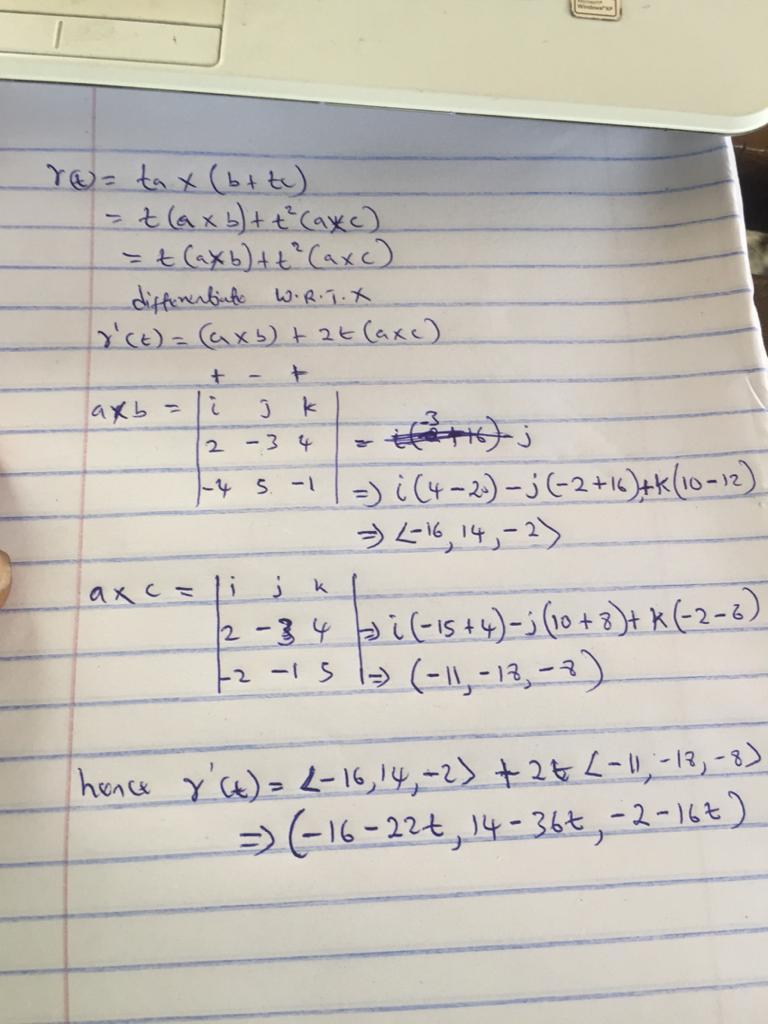 Windows XP
r(t) = ta × (b + tc)
= t(a × b) + t²(a × c)
= t(a × b) + t²(a × c)
differentiate W.R.T.X
r'(t) = (a × b) + 2t(a × c)
+ - +
a × b = | i j k |
| 2 -3 4 | = - j
| -4 5 -1 | => i(4 - 20) - j(-2 + 16) + k(10 - 12)
=> <-16, 14, -2>
a × c = | i j k |
| 2 -3 4 | => i(-15 + 4) - j(10 + 8) + k(-2 - 6)
| -2 -1 5 | => (-11, -18, -8)
hence r'(t) = <-16, 14, -2> + 2t <-11, -18, -8>
=> (-16 - 22t, 14 - 36t, -2 - 16t)